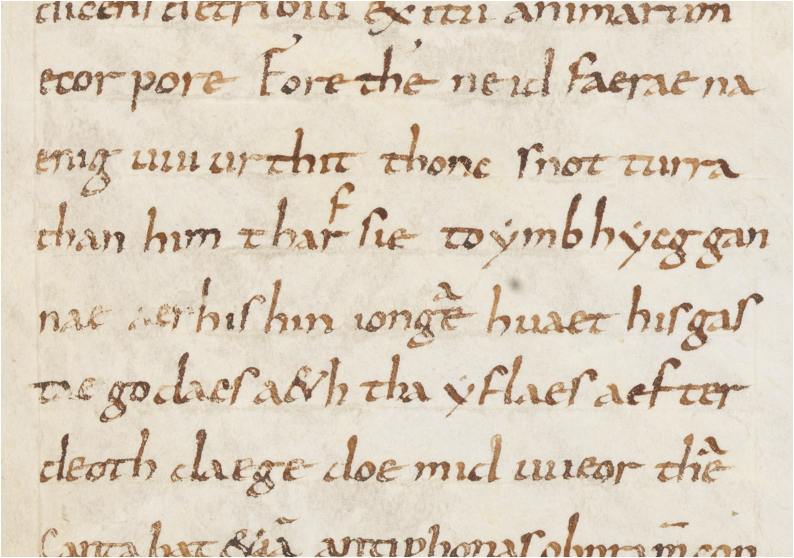 dicens detribili exitu animarum
ecor pore Fore the neid faerae na
enig uuiurthit thonc snot turra
than him tharf sie to ymbhycggan
nae aer his hin iongae huaet his gas
tae godaes a&h tha yflaes aefter
deoth daege doemid uueor thae
Cantabat &iā antiphonas ob nram̄ con